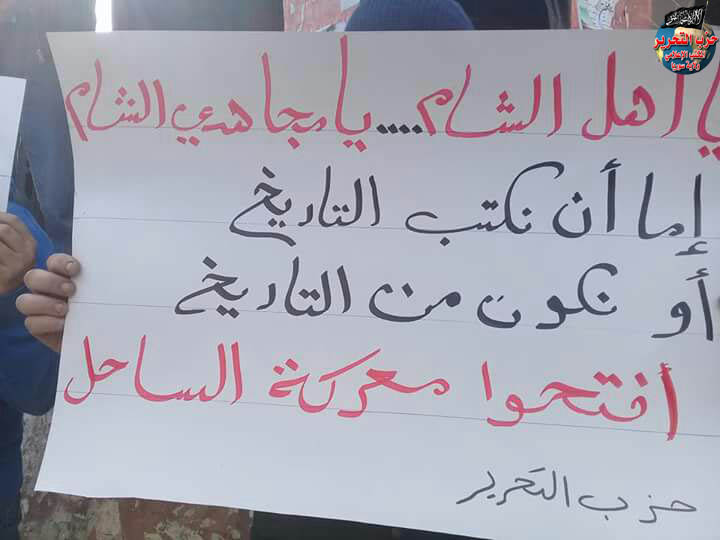 حزب التحرير
المكتب الإعلامي
ولاية سوريا
يا أهل الشام....يا مجاهدي الشام
إما أن نكتب التاريخ
أو نكون من التاريخ
أفتحوا معركة الساحل
حزب التحرير